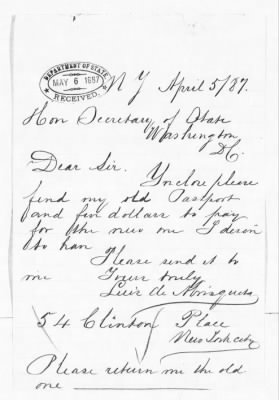 DEPARTMENT OF STATE
MAY 6 1887
RECEIVED.
N Y April 5/87.
Hon Secretary of State
Washington
DC.
Dear Sir. Inclose please
find my old Passport
and five dollars to pay
for the new one I desire
to han
Please send it to
me Yours truly
Luis de Abrisqueta
54 Clinton Place
New York city
Please return me the old
one